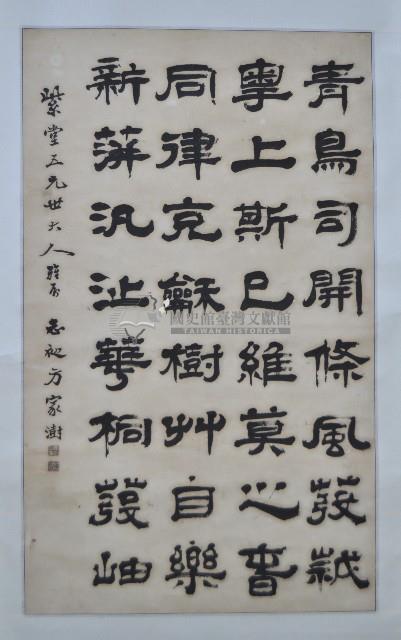 青鳥司開條風發歲
粵上斯巳維莫之萅
同律克龢樹艸自樂
新萍汎沚華桐發岫
紫堂五兄世大人雅屬 方家澍
國史館臺灣文獻館
TAIWAN HISTORICA